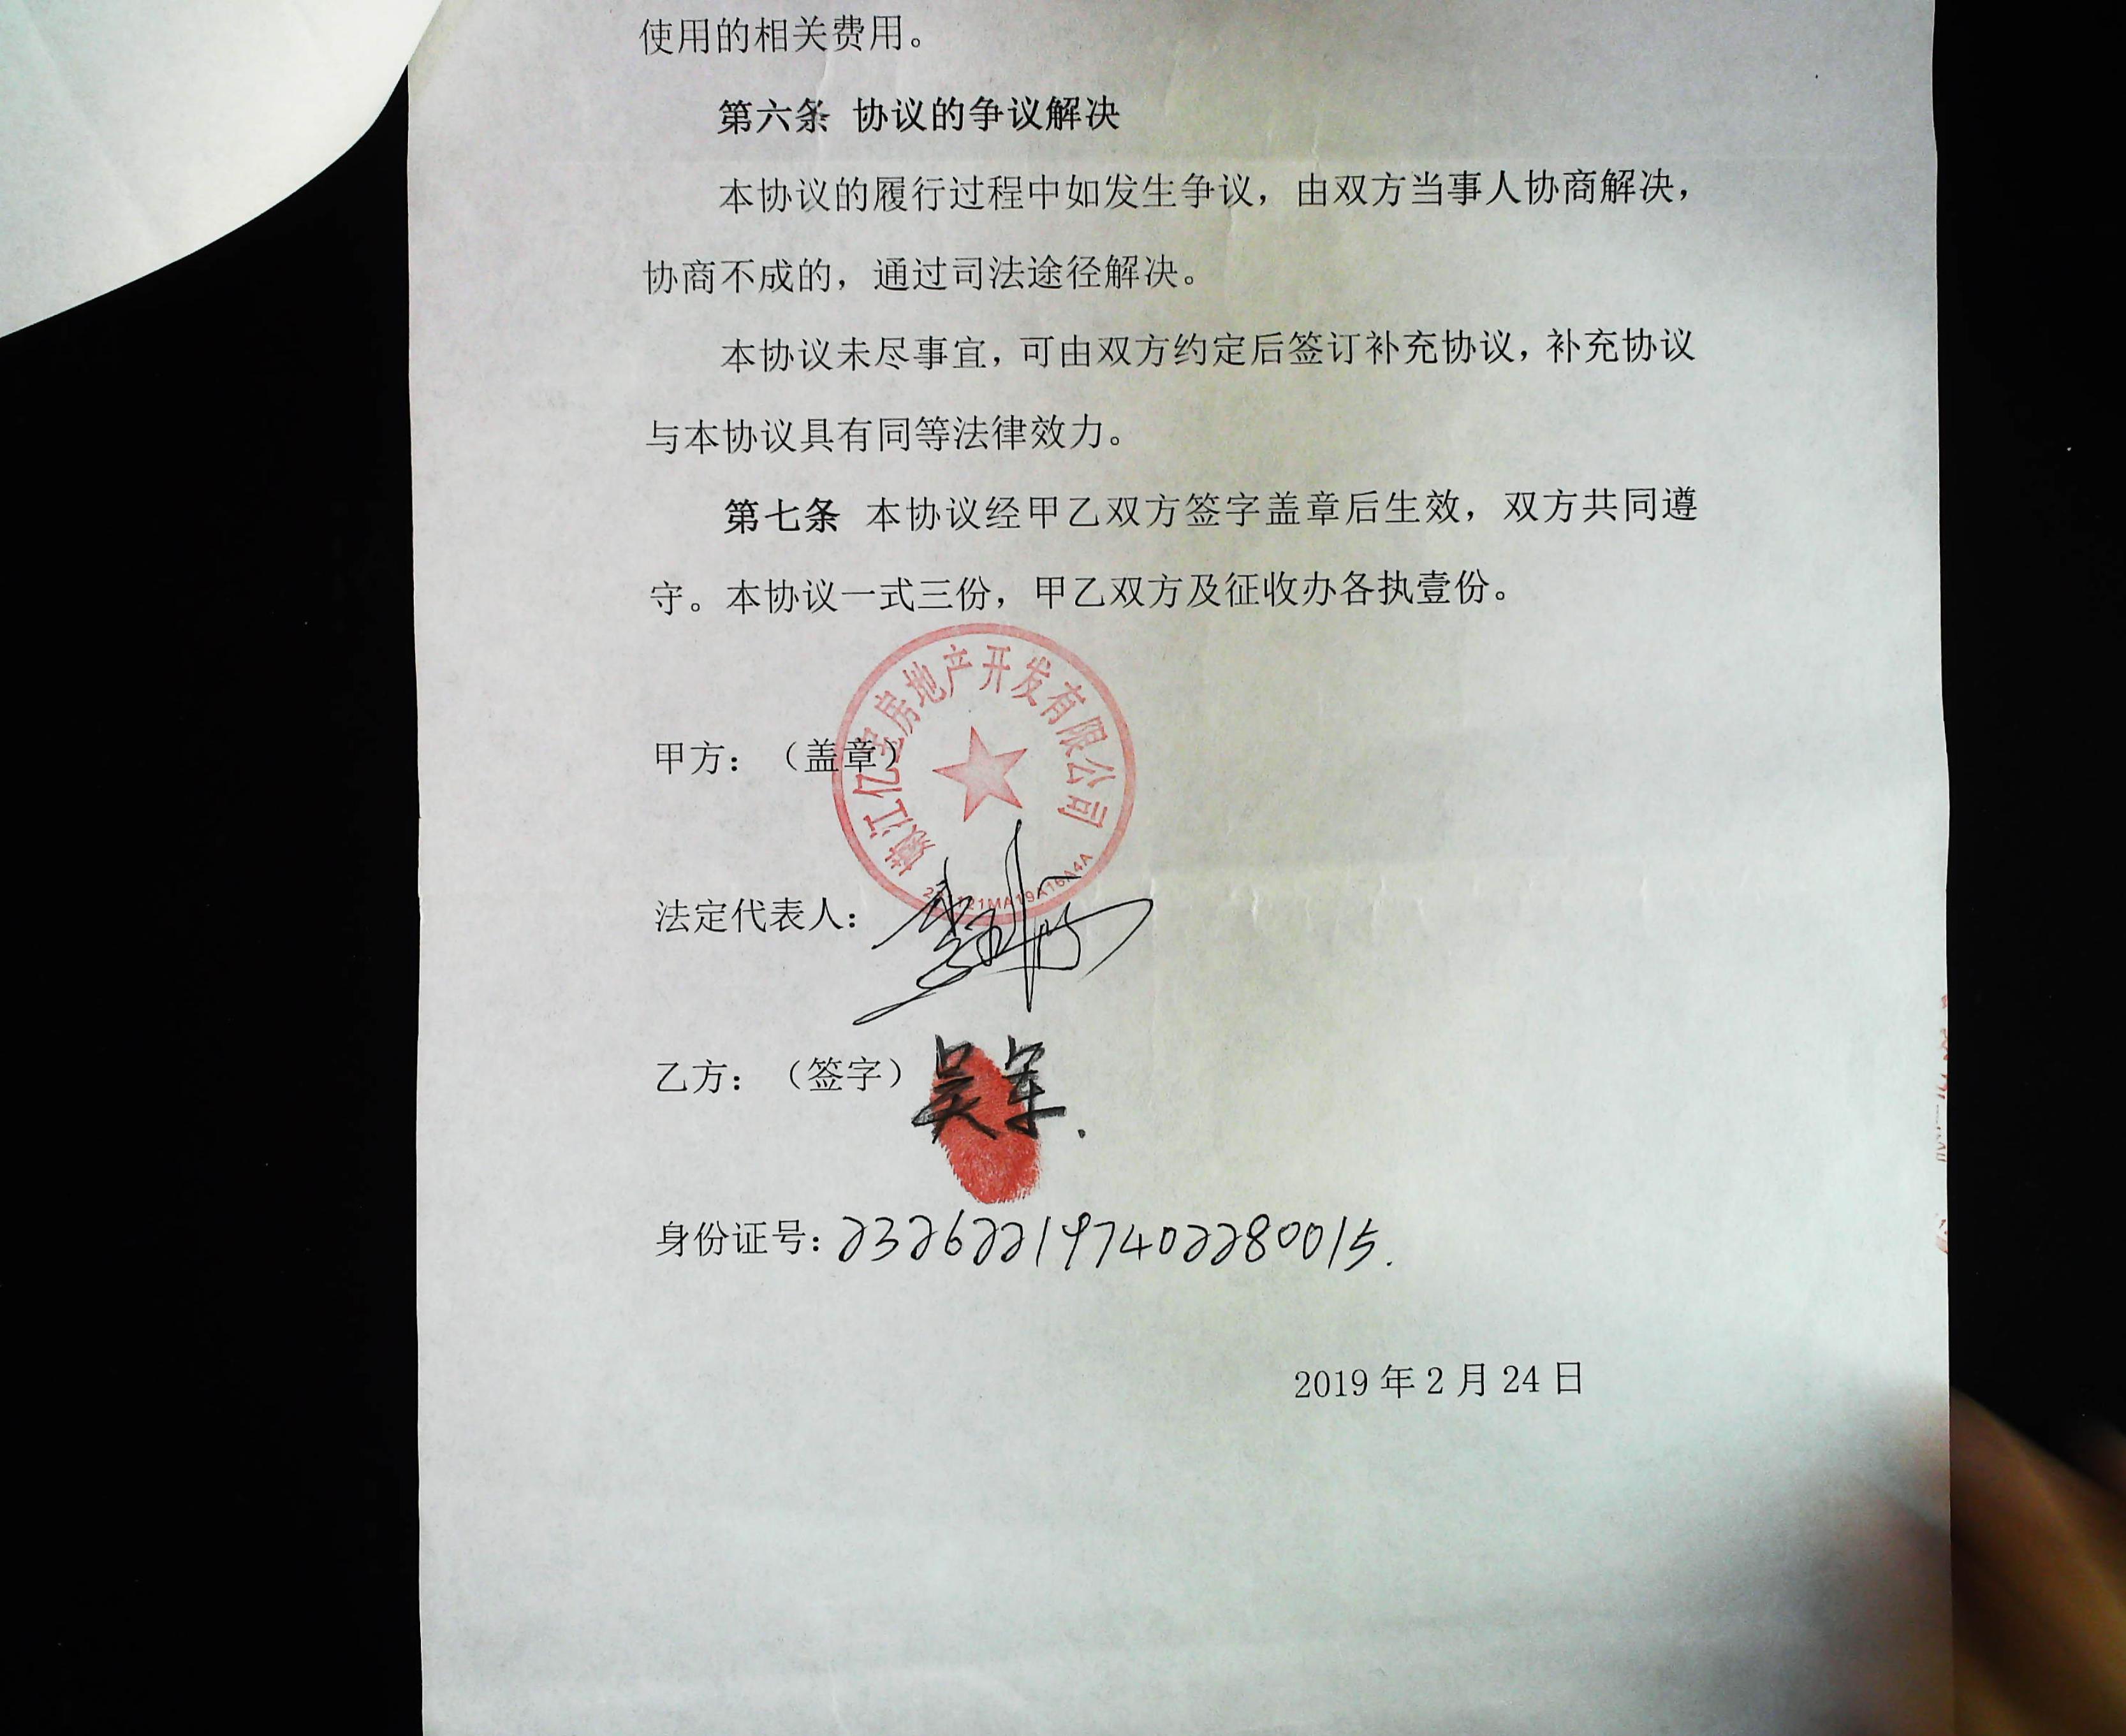 使用的相关费用。
第六条 协议的争议解决
本协议的履行过程中如发生争议，由双方当事人协商解决，
协商不成的，通过司法途径解决。
本协议未尽事宜，可由双方约定后签订补充协议，补充协议
与本协议具有同等法律效力。
第七条 本协议经甲乙双方签字盖章后生效，双方共同遵
守。本协议一式三份，甲乙双方及征收办各执壹份。
嫩江亿 房地产开发有限公司
甲方：（盖章）
法定代表人：
乙方：（签字）吴军.
身份证号：232622197402280015.
2019 年 2 月 24 日